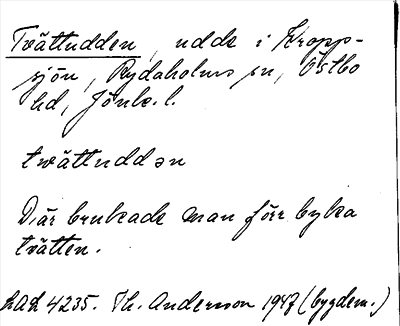 Tvättudden, udde i Kropp-
sjön, Rydaholms sn, Östbo
hd, Jönk. l.
tvättuddən
Diär brukade man förr byka
tvätten.
LAL 4235. Th. Andersson 1947 (bygdem.)